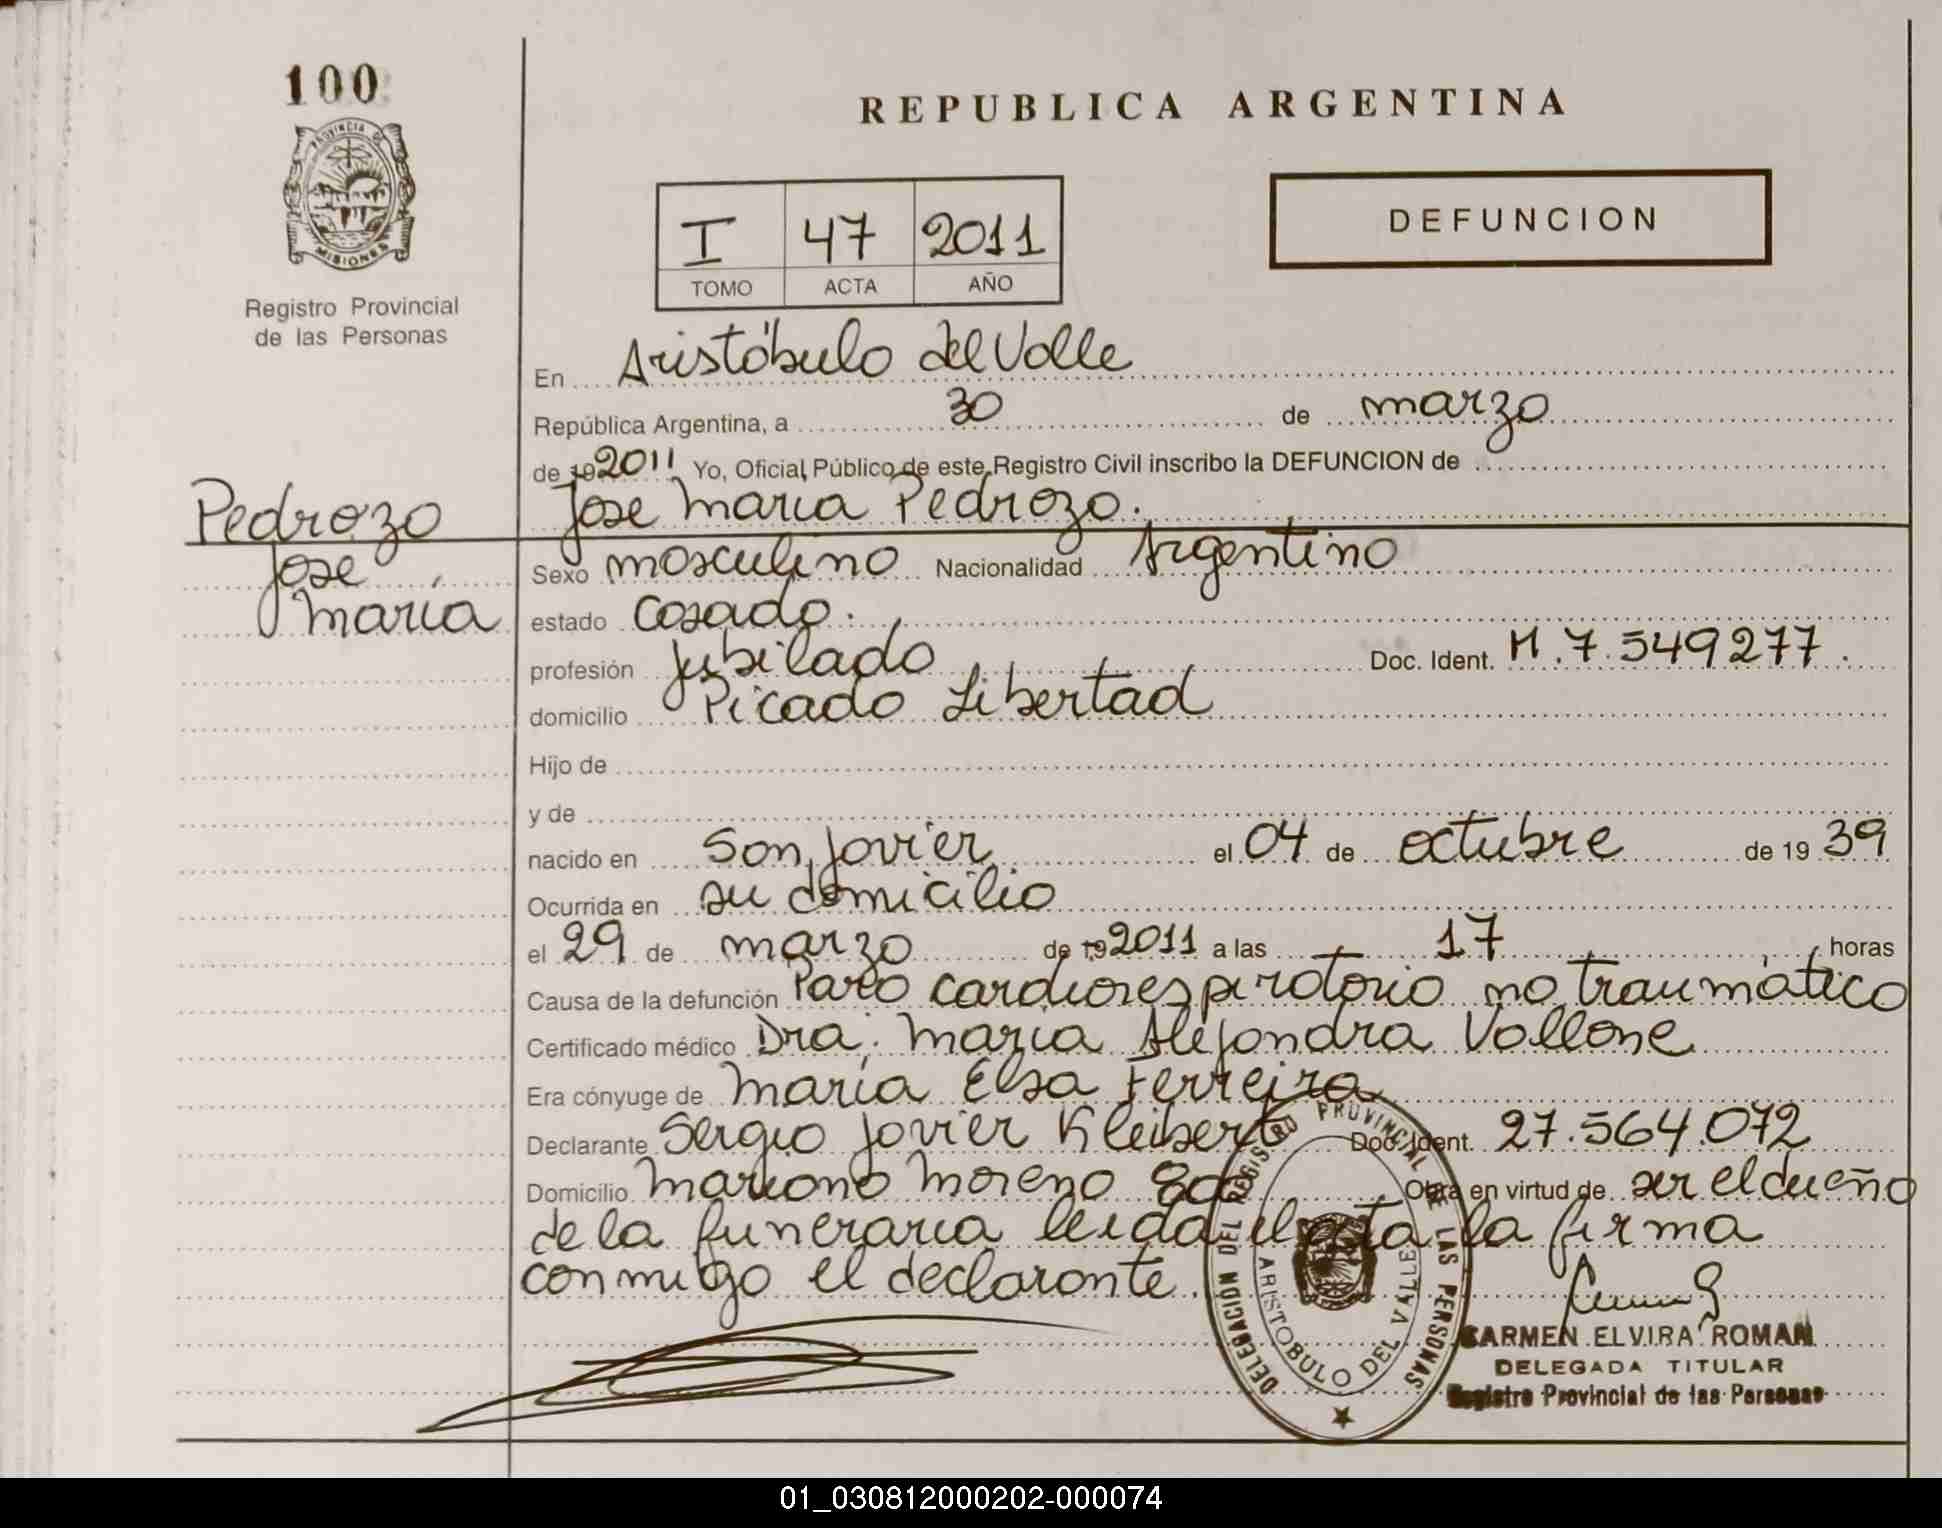 100
REPUBLICA ARGENTINA
PROVINCIA DE
MISIONES
I 47 2011
TOMO ACTA AÑO
DEFUNCION
Registro Provincial
de las Personas
En Aristóbulo del Valle
República Argentina, a 30 de marzo
de 19 2011 Yo, Oficial Público de este Registro Civil inscribo la DEFUNCION de
Jose Maria Pedrozo.
Pedrozo
Jose
Maria
Sexo masculino Nacionalidad Argentino
estado Casado.
profesión Jubilado Doc. Ident. M.7.549277.
domicilio Picada Libertad
Hijo de
y de
nacido en San Javier el 04 de octubre de 19 39
Ocurrida en su domicilio
el 29 de marzo de 19 2011 a las 17 horas
Causa de la defunción Paro cardiorespiratorio no traumático
Certificado médico Dra. María Alejandra Vallone
Era cónyuge de María Elsa Ferreira
Declarante Sergio Javier Kleibert Doc. Ident. 27.564.072
Domicilio Mariano Moreno Obra en virtud de ser el dueño
de la funeraria leida el acta la firma
conmigo el declarante.
DELEGACION DEL REGISTRO PROVINCIAL DE LAS PERSONAS
ARISTOBULO DEL VALLE
CARMEN ELVIRA ROMAN
DELEGADA TITULAR
Registro Provincial de las Personas
01_030812000202-000074